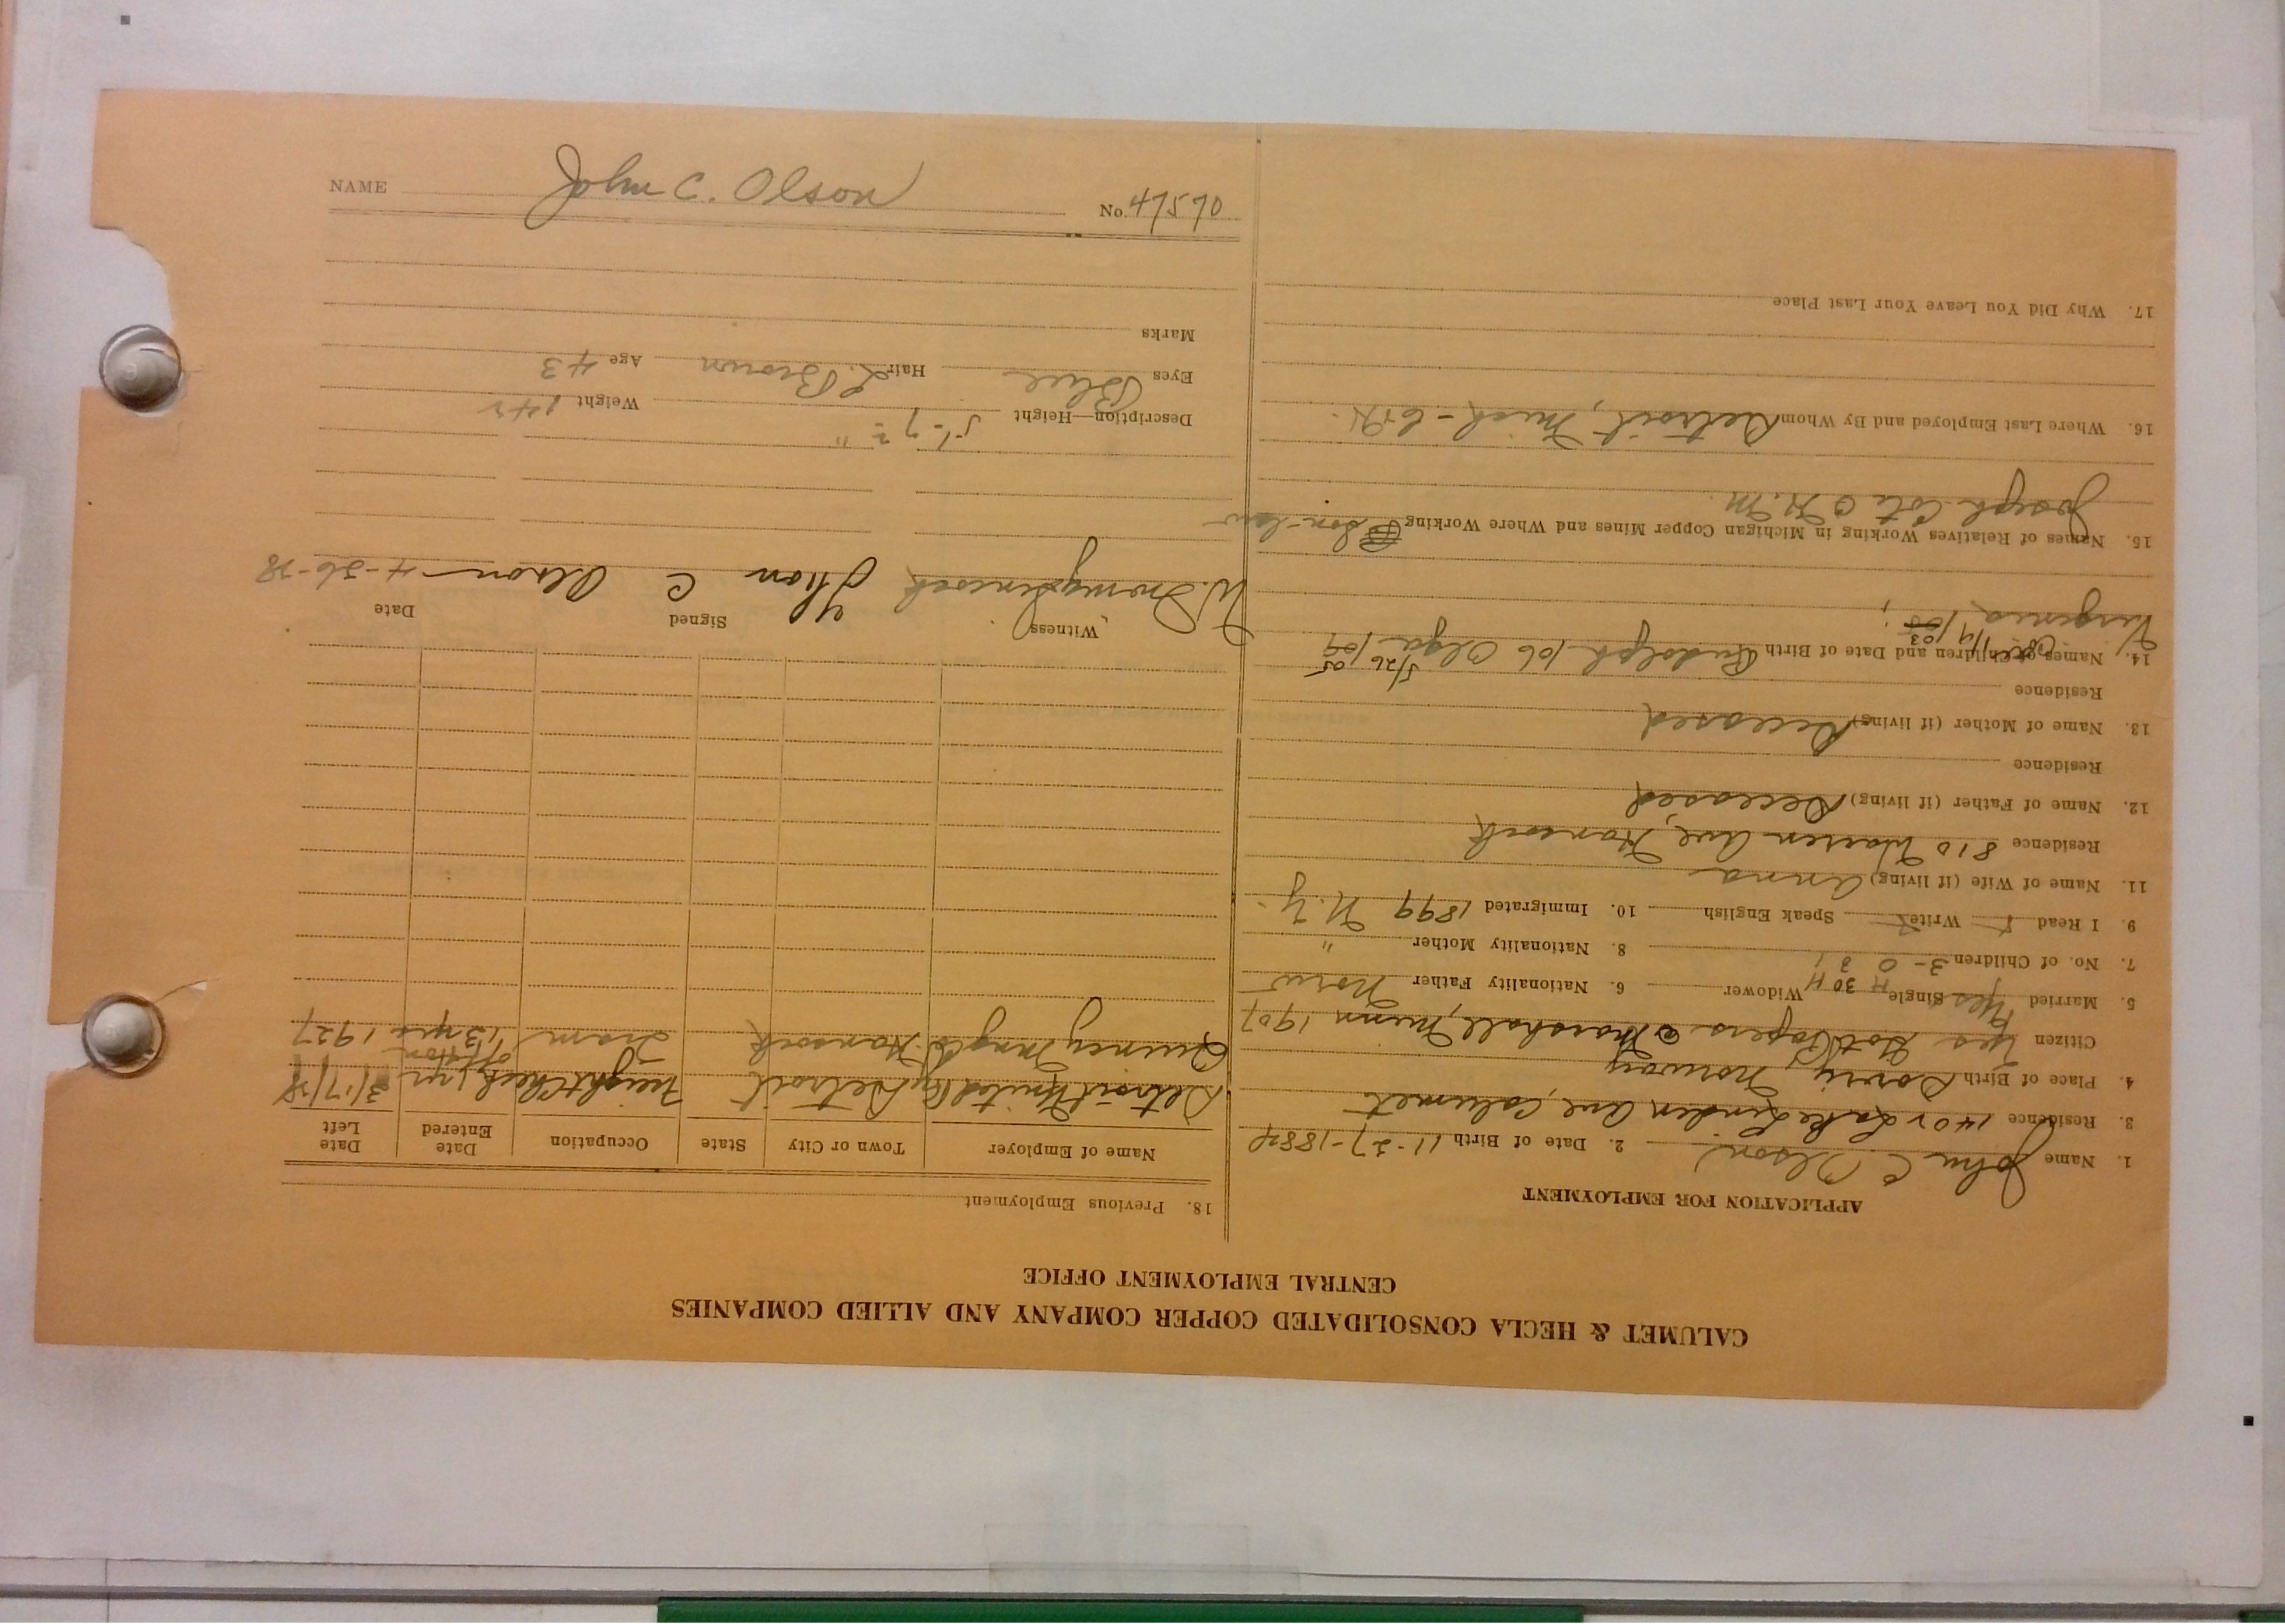 CALUMET & HECLA CONSOLIDATED COPPER COMPANY AND ALLIED COMPANIES
CENTRAL EMPLOYMENT OFFICE
APPLICATION FOR EMPLOYMENT
1. Name John C. Olson 2. Date of Birth 11-27-1884
3. Residence Lake Linden Ave, Calumet
4. Place of Birth Norway
Citizen Yes Got Papers Marshall, Minn 1907
5. Married Yes Single Widower 6. Nationality Father Norw
7. No. of Children 3 - 0 8. Nationality Mother "
9. I Read Write Speak English 10. Immigrated 1899 N.Y.
11. Name of Wife (if living) Anna
Residence 810 Warren Ave, Hancock
12. Name of Father (if living) Deceased
Residence
13. Name of Mother (if living) Deceased
Residence
14. Names of Children and Date of Birth Rudolph 106 Olga
Virginia
15. Names of Relatives Working in Michigan Copper Mines and Where Working Son-law
Joseph
16. Where Last Employed and By Whom Detroit, Mich -
17. Why Did You Leave Your Last Place
18. Previous Employment
Name of Employer Town or City State Occupation Date Entered Date Left
Detroit United Ry Detroit Freight Check 1 yr 3/17/28
Quincy Mng Co Hancock Tram 13 yrs 1927
Witness Signed Date
W. Jhon C Olson 4-26-28
Description—Height 5'-7 Weight
Eyes Blue Hair L. Brown Age 43
Marks
NAME John C. Olson No. 47570